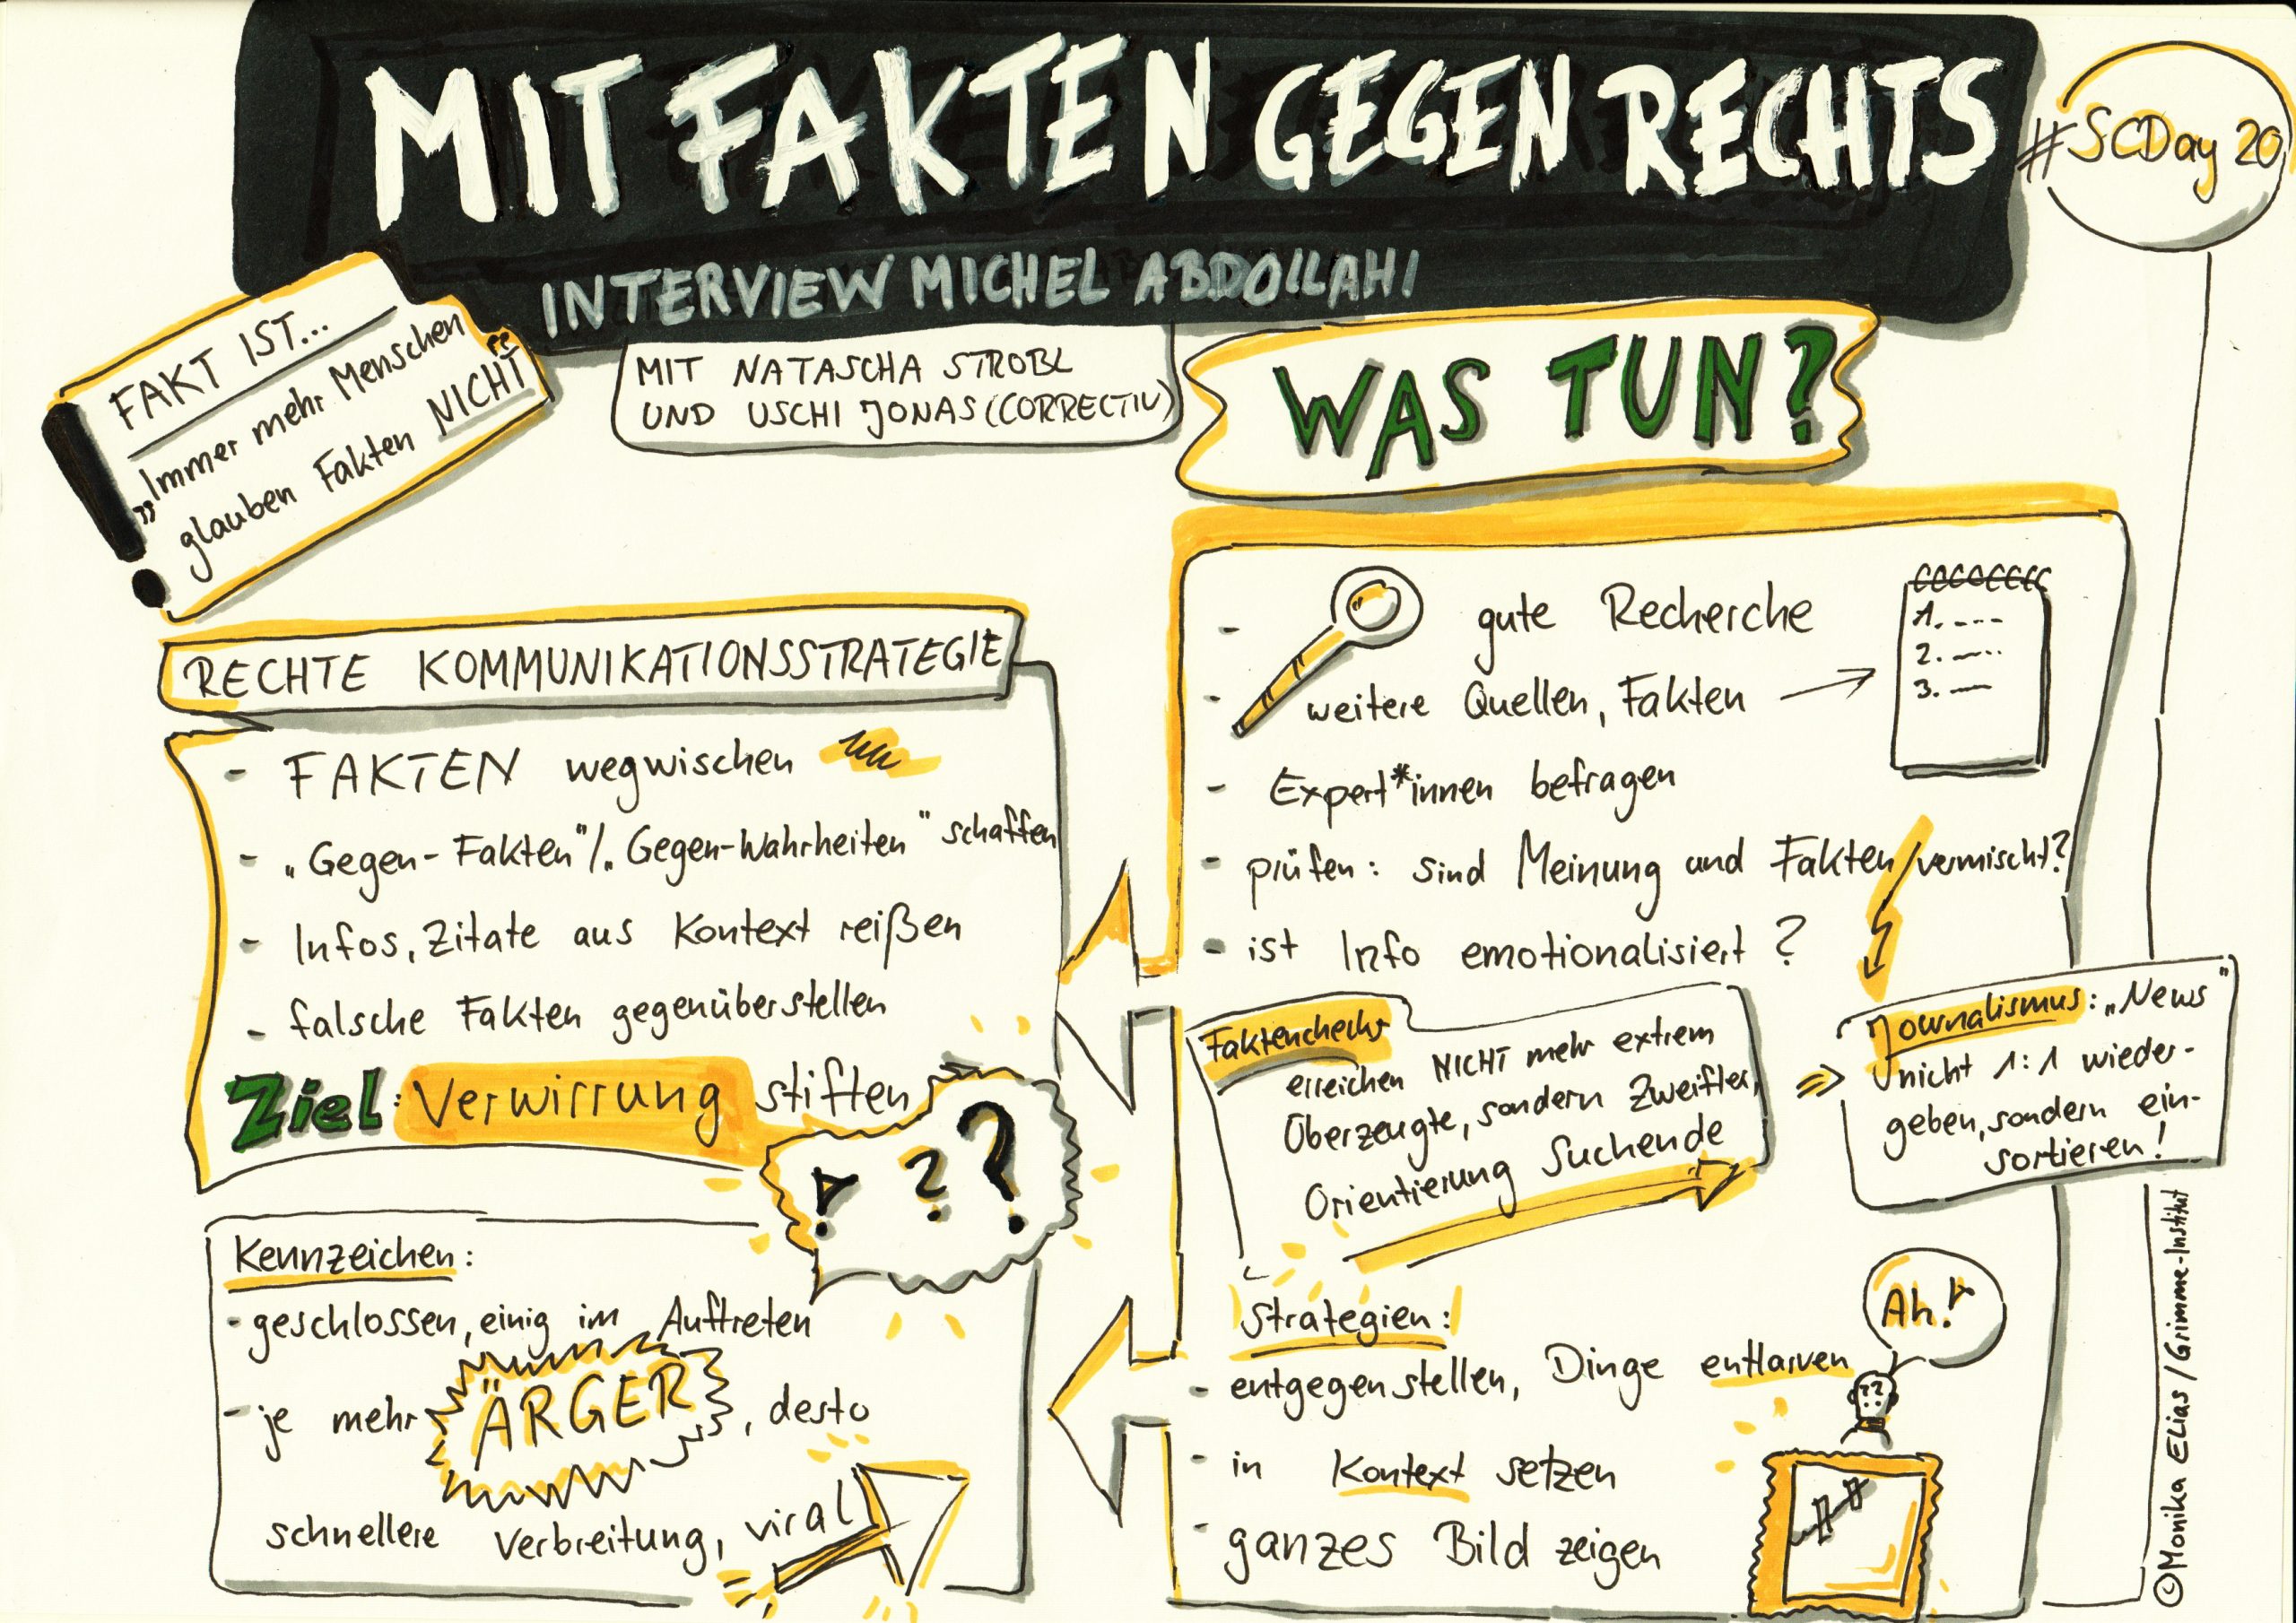 MIT FAKTEN GEGEN RECHTS
#SCDay 20
INTERVIEW MICHEL ABDOLLAHI
MIT NATASCHA STROBL
UND USCHI JONAS (CORRECTIV)
FAKT IST...
„Immer mehr Menschen
glauben Fakten NICHT“
RECHTE KOMMUNIKATIONSSTRATEGIE
- FAKTEN wegwischen
- „Gegen-Fakten“/„Gegen-Wahrheiten“ schaffen
- Infos, Zitate aus Kontext reißen
- falsche Fakten gegenüberstellen
Ziel: Verwirrung stiften
! ? ?
Kennzeichen:
- geschlossen, einig im Auftreten
- je mehr ÄRGER, desto
schnellere Verbreitung, viral
WAS TUN?
- gute Recherche
- weitere Quellen, Fakten
1.
2.
3.
- Expert*innen befragen
- prüfen: sind Meinung und Fakten vermischt?
- ist Info emotionalisiert?
Faktenchecks
erreichen NICHT mehr extrem
Überzeugte, sondern Zweifler,
Orientierung Suchende
Journalismus: „News“
nicht 1:1 wieder-
geben, sondern ein-
sortieren!
Strategien:
- entgegenstellen, Dinge entlarven
- in Kontext setzen
- ganzes Bild zeigen
Ah!
©Monika Elias / Grimme-Institut